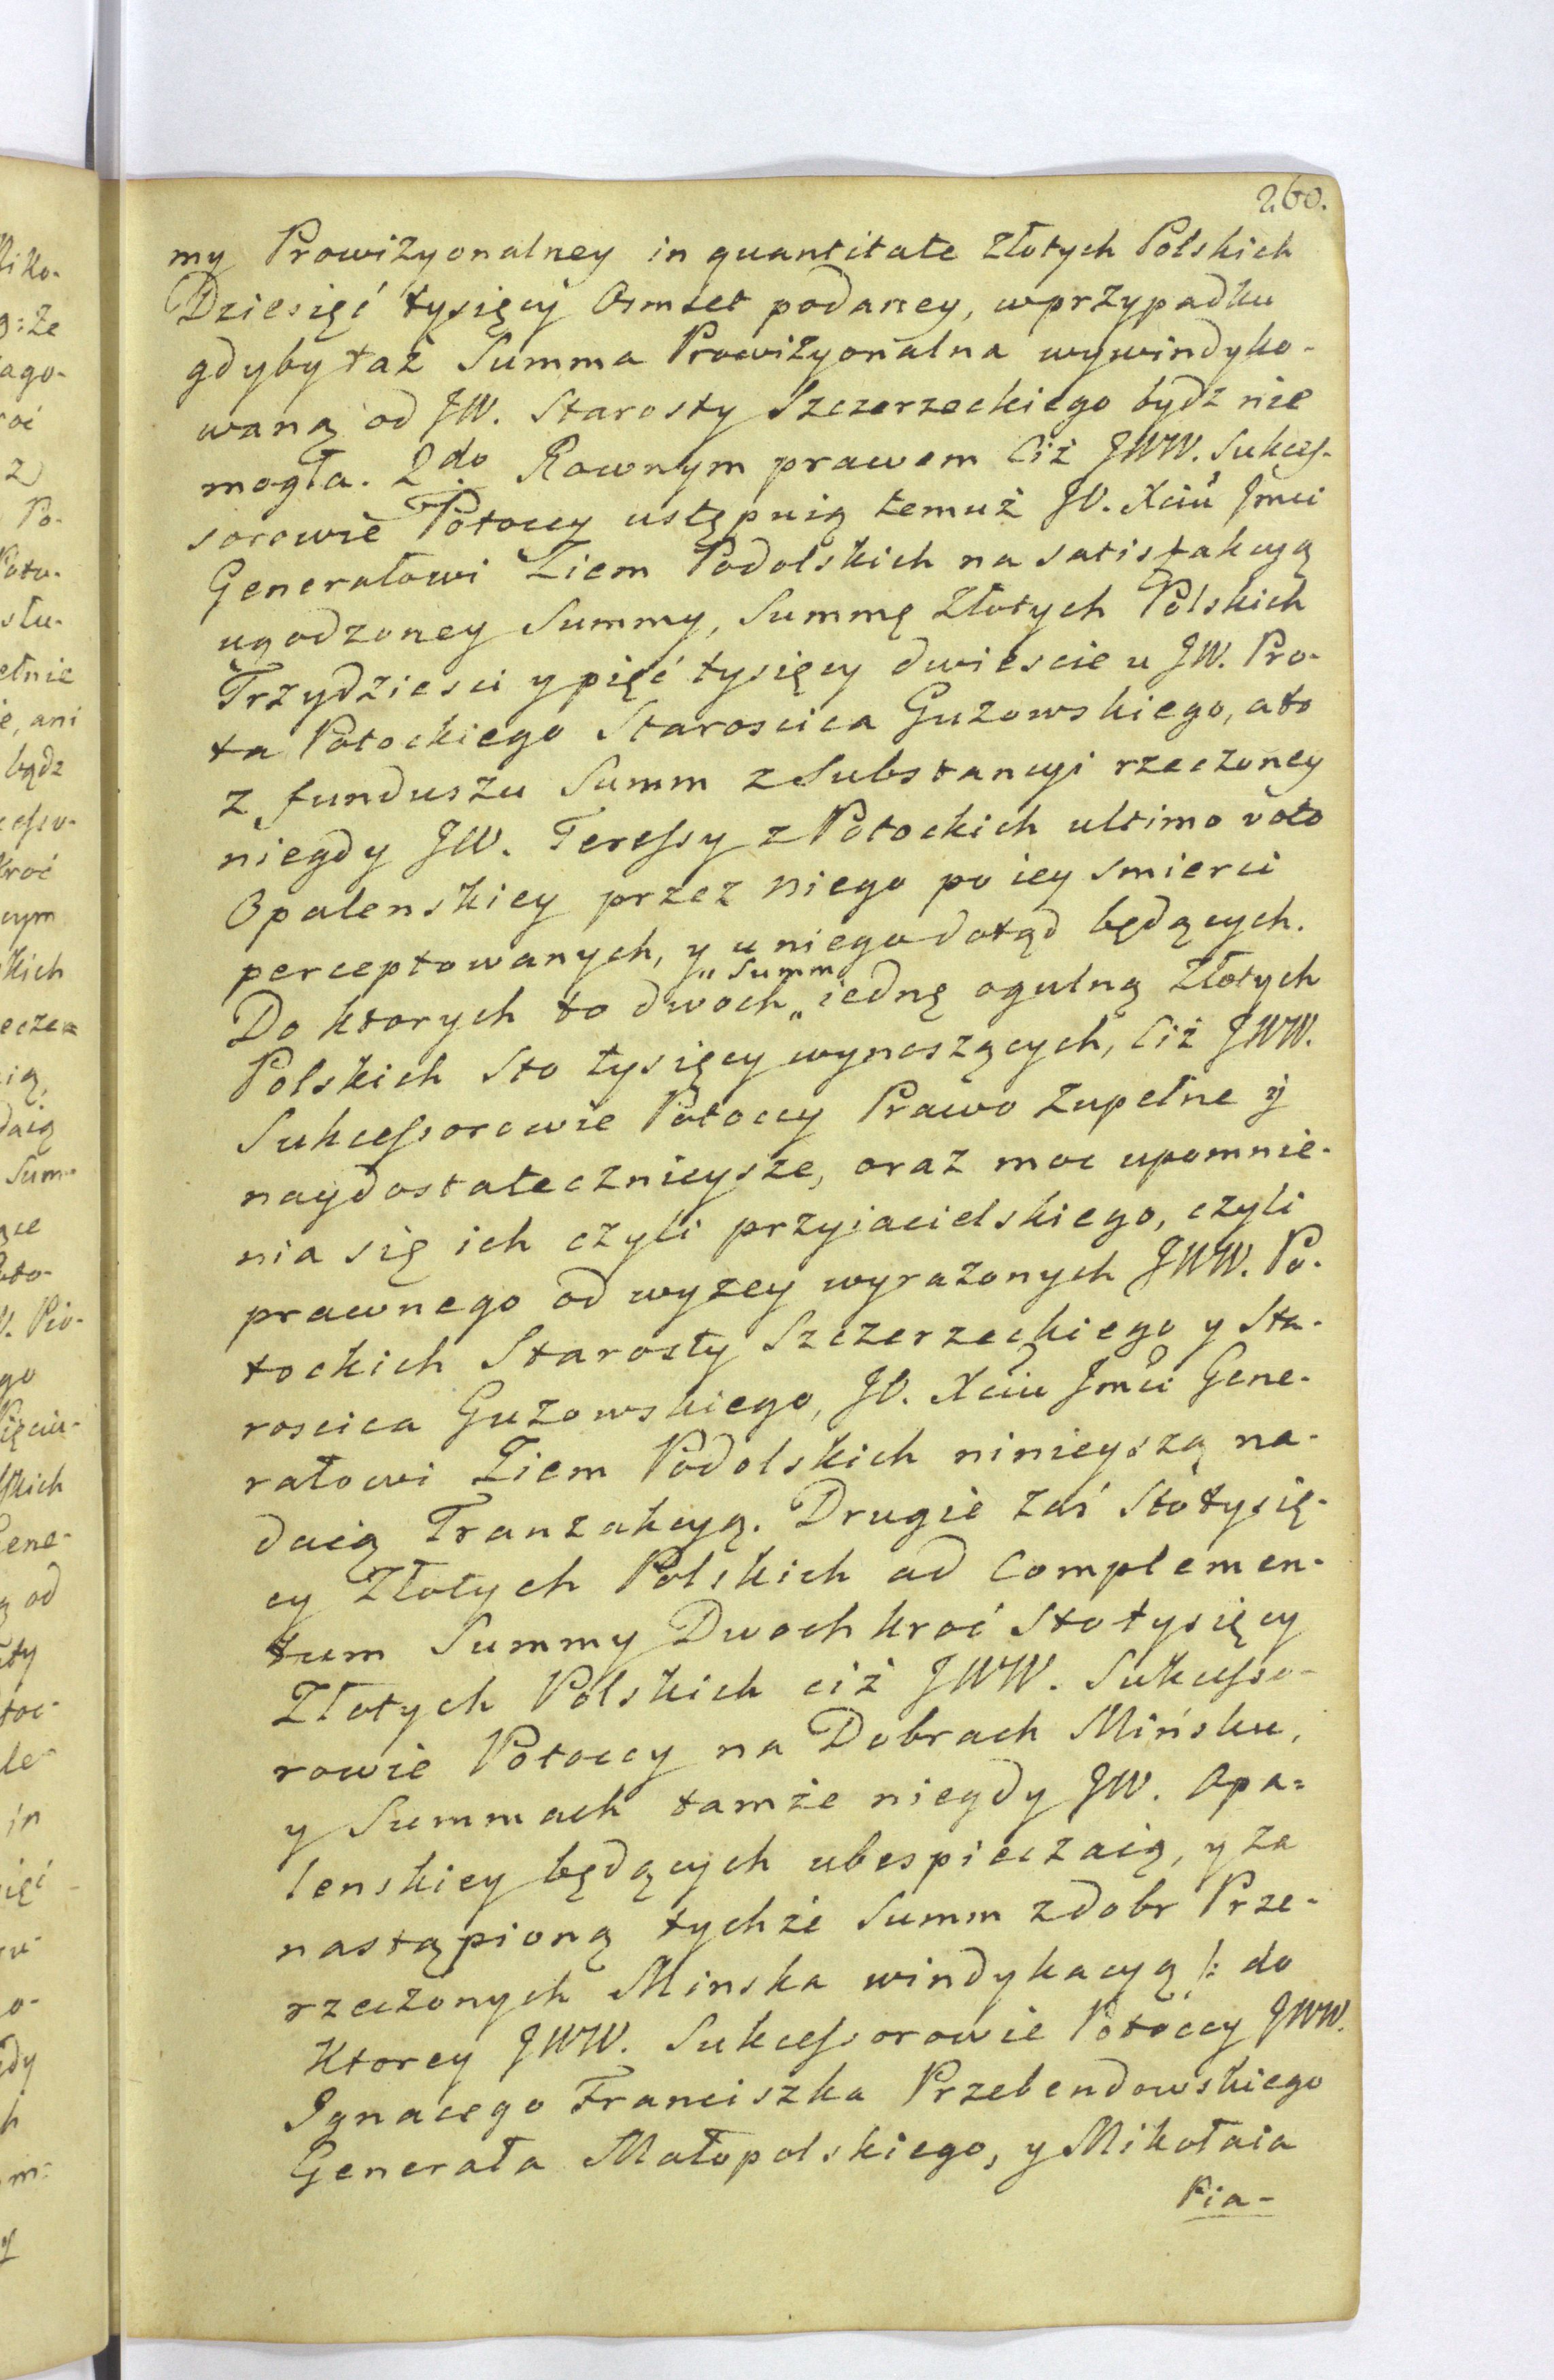 260.
my Prowizyonalney in quantitate Złotych Polskich
Dziesięć tysięcy Osmset podaney, w przypadku
gdyby taż Summa Prowizyonalna wywindyko-
waną od JW. Starosty Szczerzeckiego bydz nie
mogła. 2do. Rownym prawem Ciż JWW. Sukces-
sorowie Potoccy ustępuią temuż JO. Xciu Jmci
Generałowi Ziem Podolskich na satisfakcyą
ugodzoney Summy, Summę Złotych Polskich
Trzydziesci y pięć tysięcy dwiescie u JW. Pro-
ta Potockiego Staroscica Guzowskiego, a to
z funduszu Summ z Substancyi rzeczoney
niegdy JW. Teressy z Potockich ultimo voto
Opalenskiey przez niego po iey smierci
perceptowanych, y u niego dotąd będących.
„ Summ
Do ktorych to dwoch „ iednę ogulną Złotych
Polskich Sto tysięcy wynoszących, Ciż JWW.
Sukcessorowie Potoccy Prawo zupełne ÿ
naydostatecznieysze, oraz moc upomnie-
nia się ich czyli przyiacielskiego, czyli
prawnego od wyzey wyrazonych JWW. Po-
tockich Starosty Szczerzeckiego y Sta-
roscica Guzowskiego, JO. Xciu Jmci Gene-
rałowi Ziem Podolskich ninieyszą na-
daią Tranzakcyą. Drugie zaś Sto tysię-
cy Złotych Polskich ad Complemen-
tum Summy Dwoch kroć Sto tysięcy
Złotych Polskich ciż JWW. Sukcesso-
rowie Potoccy na Dobrach Mińsku,
y Summach tamże niegdy JW. Opa=
lenskiey będących ubespieczaią, y za
nastąpioną tychże Summ z dobr Prze-
rzeczonych Minska windykacyą /: do
Ktorey JWW. Sukcessorowie Potoccy JWW.
Ignacego Franciszka Przebendowskiego
Generała Małopolskiego, y Mikołaia
Pia-